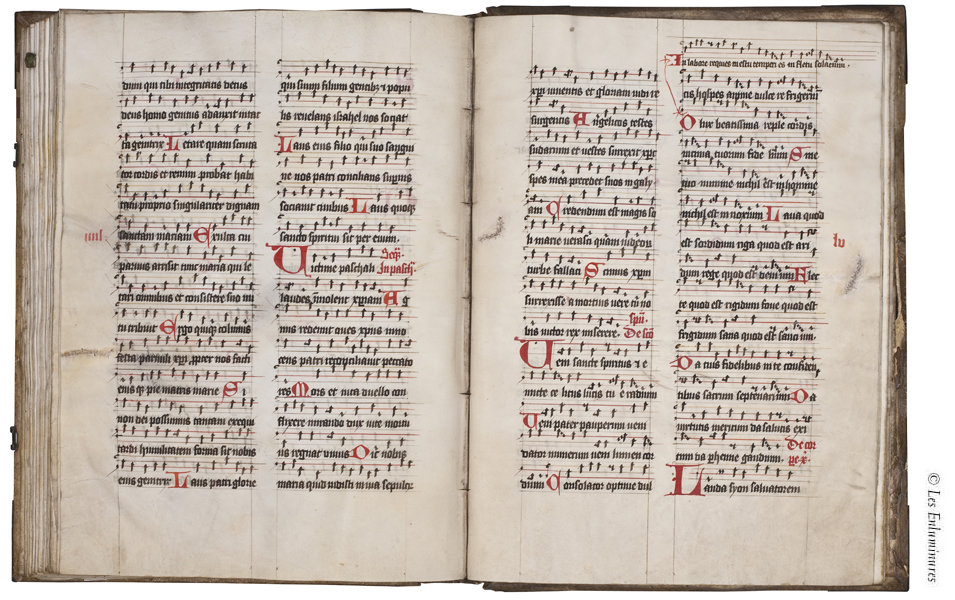 deus homo genitus
ta genitrix Letare quam scruta
tor cordis et renum probat habi
taculo proprio singulariter dignam
sanctam mariam Exulta cui
paruus arrisit tunc maria qui le
tari omnibus et consistere suo nu
tu tribuit Ergo quique colimus
festa
eius matris marie Si
non dei possumus tantam exequi
tardi humilitatem forma sit nobis
eius genitrix Laus patri glorie
qui suum filium gentibus et populis
revelans israhel nos sociat
Laus eius filio qui suo sangui
ne nos patri concilians supernis
sociavit civibus Laus quoque
sancto spiritui sit per evum.
Victime paschali In pasch
laudes ymolent xpiani Ag
nus redemit oves xpus inno
cens patri reconciliavit peccato
res Mors et vita duello con
flixere mirando dux vite mortu
us regnat vivus Dic nobis
maria quid vidisti in via sepulcr
iiii
xpi viventis et gloriam vidi re
surgentis Angelicos testes
sudarium et vestes surrexit xpc
spes mea precedet suos in galy
am Credendum est magis so
li marie veraci quam iudeor
turbe fallaci Scimus xpm
surrexisse a mortuis vere tu no
bis victor rex miserere. De sco
spu.
Veni sancte spiritus et e
mitte celitus lucis tue radium
Veni pater pauperum veni
dator munerum veni lumen cor
dium Consolator optime dul
In labore requies in estu temperies in fletu solacium.
cis hospes anime dulce refrigerium
O lux beatissima reple cordis
intima tuorum fidelium Sine
tuo numine nichil est in homine
nichil est innoxium Lava quod
est sordidum riga quod est ari
dum rege quod est devium Flec
te quod est rigidum fove quod est
frigidum sana quod est saucium
Da tuis fidelibus in te confiden
tibus sacrum septenarium Da
virtutis meritum da salutis exi
tum da perenne gaudium. De cor
pe x.
Lauda syon salvatorem
lv
© Les Enluminures